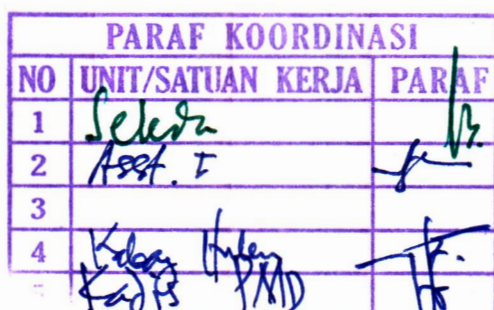 PARAF KOORDINASI
NO UNIT/SATUAN KERJA PARAF
1 Sekda
2 Asst. I
3
4 Kabag Hukum
5 Kadis PMD